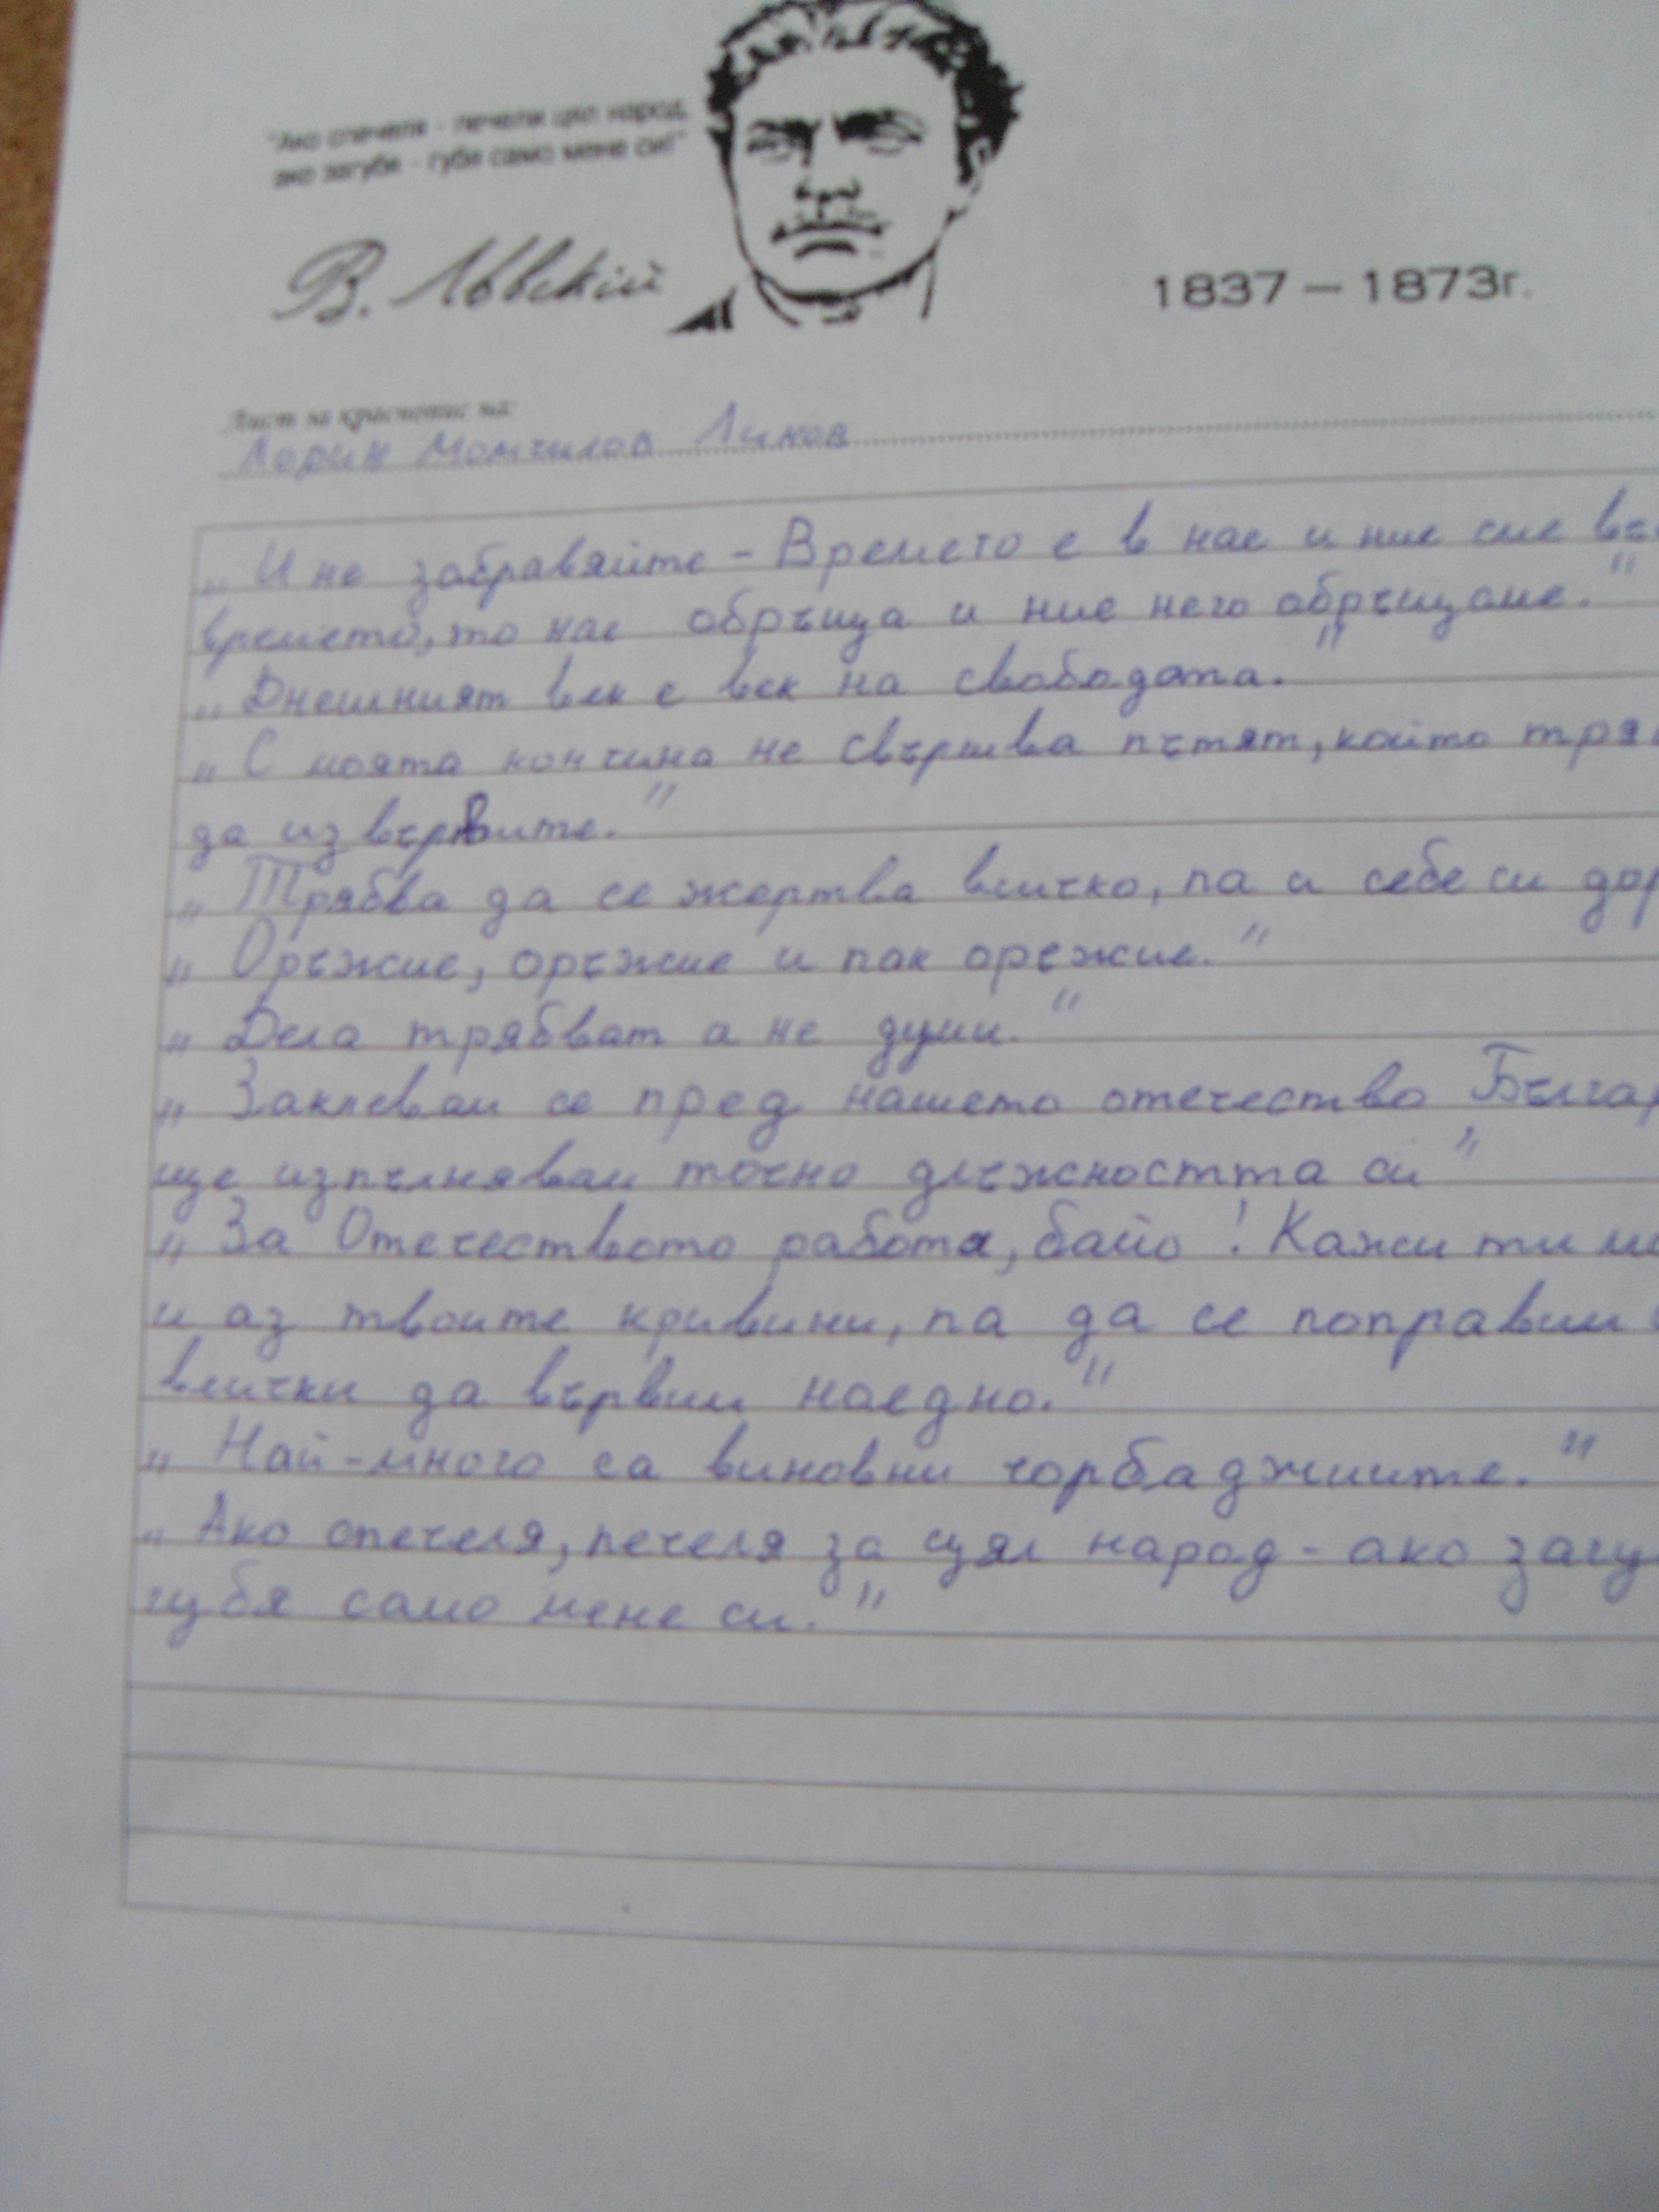 "Ако спечеля - печеля цял народ,
ако загубя - губя само мене си!"
В. Лѣвскій
1837 – 1873г.
Лист за краснопис на:
Лорин Момчилов Линов
„И не забравяйте - Времето е в нас и ние сме
времето, то нас обръща и ние него обръщаме."
„Днешният век е век на свободата."
„С моята кончина не свършва пътят, който
да извървите."
„Трябва да се жертва всичко, па и себе си
„Оръжие, оръжие и пак оръжие."
„Дела трябват а не думи."
„Заклевам се пред нашето отечество
ще изпълнявам точно длъжността си"
„За Отечеството работя, байо! Кажи ти
и аз твоите кривини, па да се поправим
всички да вървим наедно."
„Най-много са виновни чорбаджиите."
„Ако спечеля, печеля за цял народ - ако
губя само мене си."